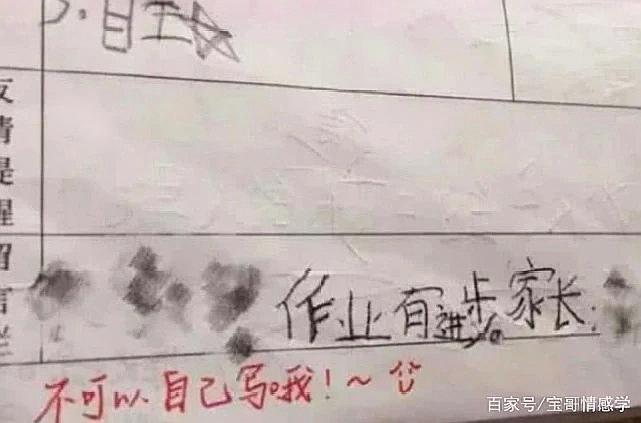 3.自主
友情提醒
留言栏
作业有进步。家长:
不可以自己写哦!~
百家号/宝哥情感学